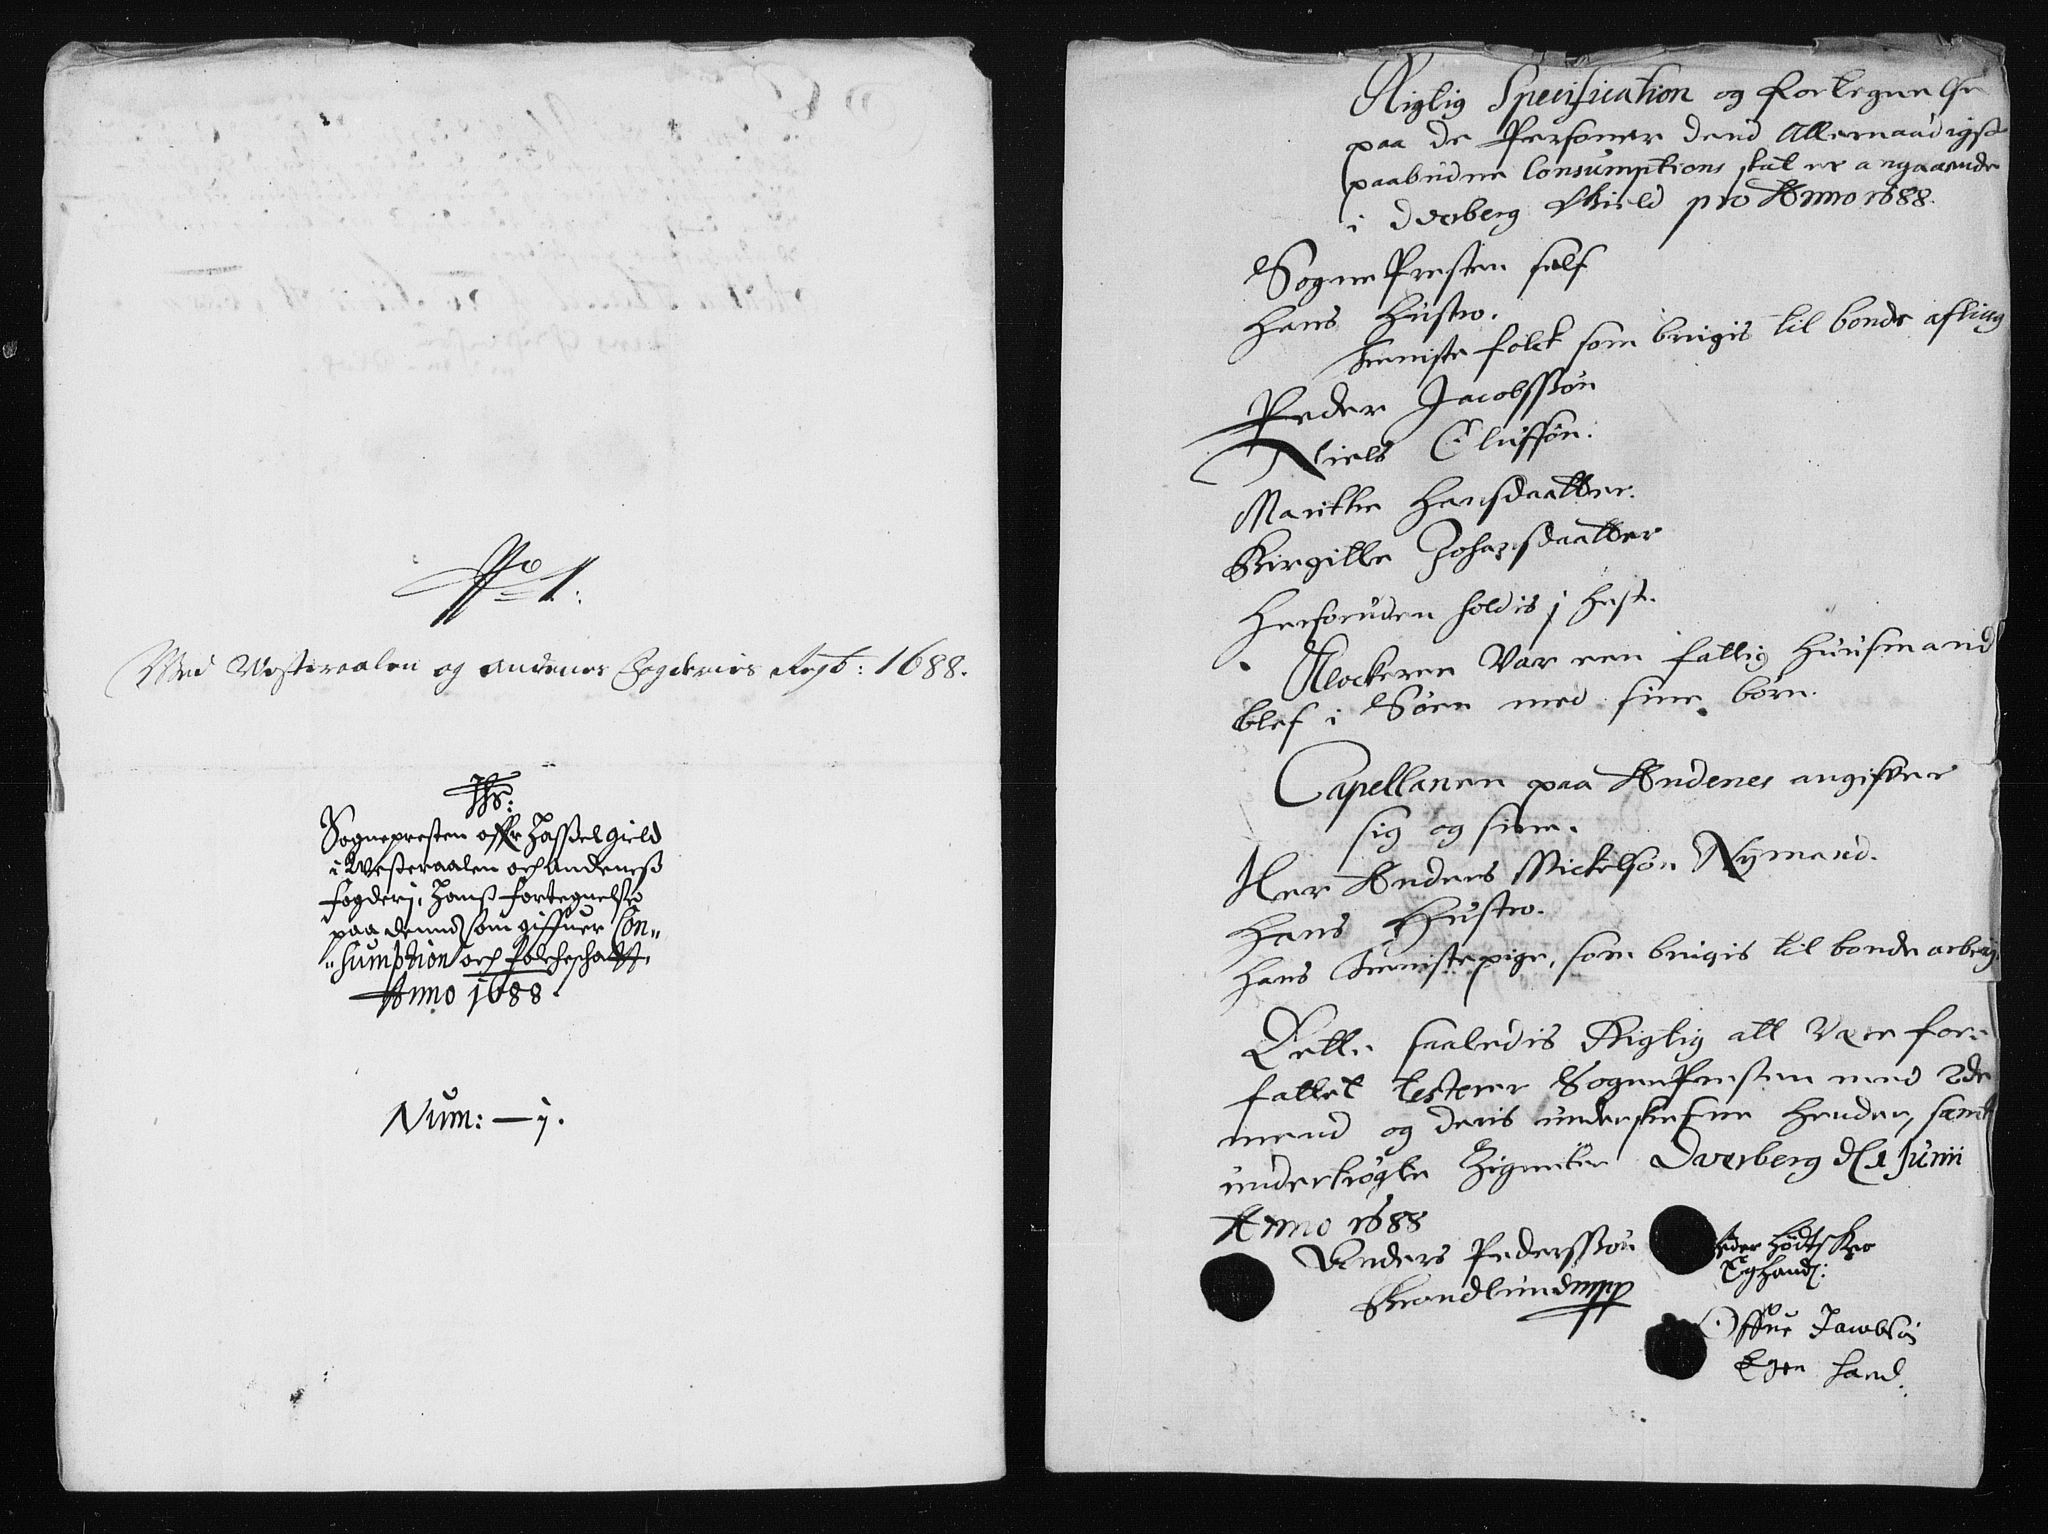 No 1:
Med Westeraalen og Andenes Fogderies Regb: 1688.
Ths:
Sognepresten offr Hassel gield
i Westeraalen och Andeness
fogderj, Hanss fortegnelse
paa dennd som giffuer Con=
=sumption och Folcheschatt
Anno 1688
Num: — j.
Rigtig Specification og fortegnelse
paa de Personer dend Allernaadigst
paabudne Consumptions skat er angaaende
i Dverberg Gield pro Anno 1688.
SognePresten self
Hans Hustro.
tienniste folck som brugis til bonde afling
Peder Jacobssøn
Niels Oluffsøn.
Maritte Hansdaatter.
Birgitte Johansdaatter
Herforuden holdis j hest.
Klockeren var een fattig Huusmand
blef i Søen med sine børn.
Capellanen paa Andenes angifver
sig og sine.
Her Anders Mickelsøn Nymand.
Hans Hustro.
Hans tiennistepige, som brugis til bonde arbeig
Dette saaledis Rigtig att være for=
fattet testerer SognePresten med 2de
mend og deris underskrefne Hender, samt
undertrøgte Zigneter Dverberg d. 1 Junii
Anno 1688
Anders Pederssøn
mpp
Peder
Egh hand:
Offue Jacobsøn
Egen hand.